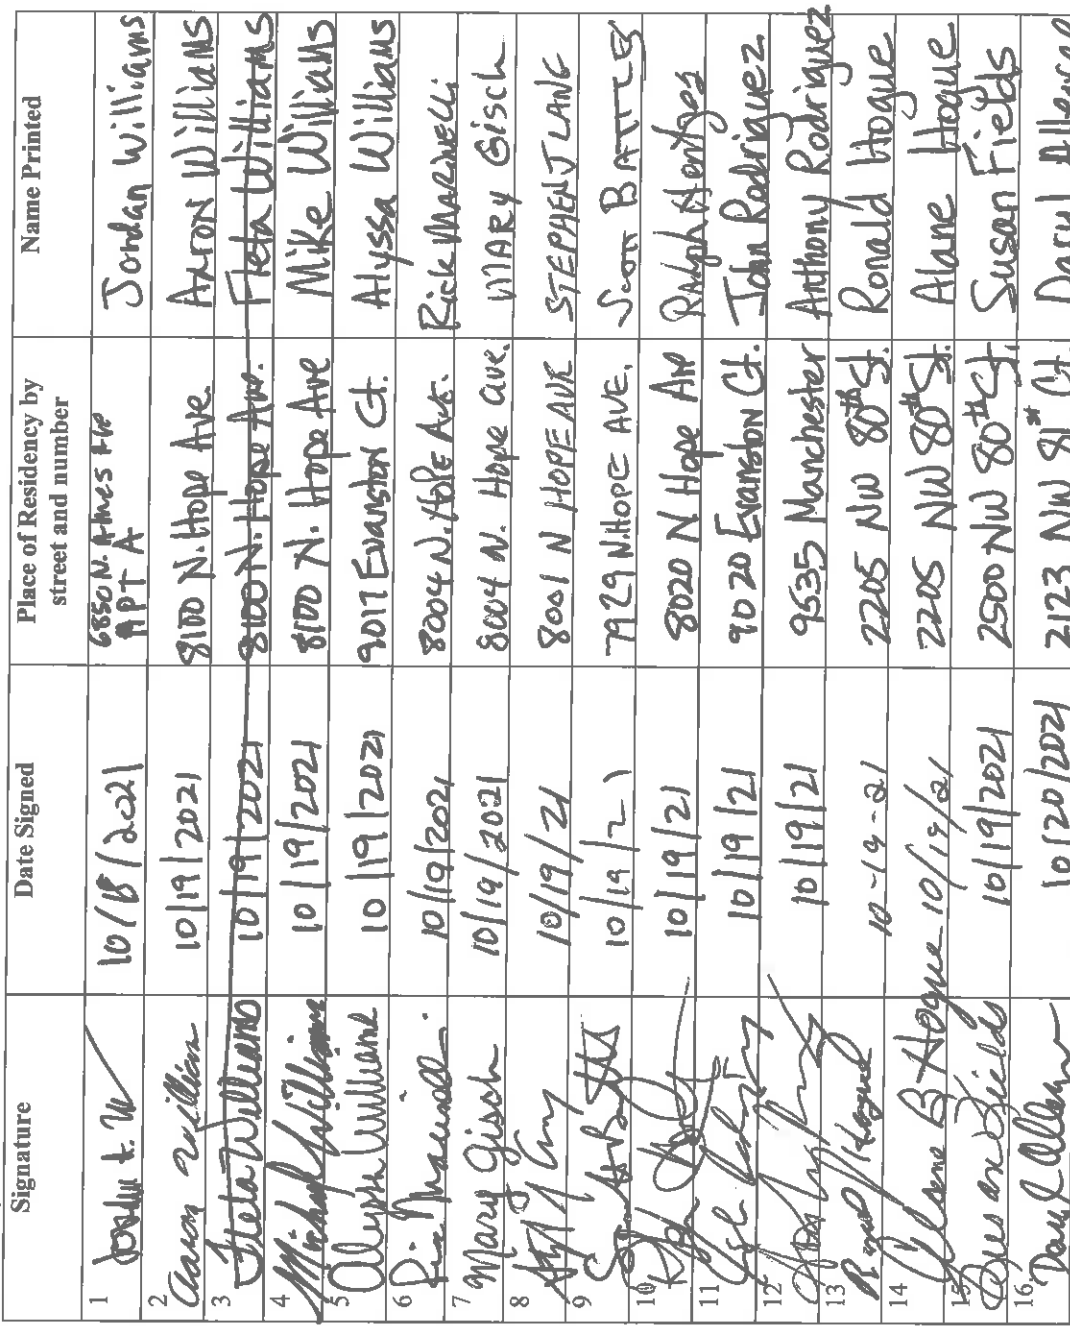 Signature Date Signed Place of Residency by street and number Name Printed
1 10/18/2021 6850 N. Ames Ave APT A Jordan Williams
2 Aaron William 10/19/2021 8100 N. Hope Ave. Aaron Williams
3 Fleta Williams 10/19/2021 8100 N. Hope Ave. Fleta Williams
4 Michael Williams 10/19/2021 8100 N. Hope Ave Mike Williams
5 Alyssa Williams 10/19/2021 9017 Evanston Ct. Alyssa Williams
6 10/19/2021 8004 N. HOPE Ave. Rick
7 Mary Gisch 10/19/2021 8004 N. Hope Ave. MARY Gisch
8 10/19/21 8001 N HOPE AVE STEPHEN J LANG
9 10/19/21 7929 N. HOPE AVE. Scott BATTLES
10 10/19/21 8020 N Hope Ave Ralph Hentges
11 10/19/21 9020 Evanston Ct. John Rodriguez
12 10/19/21 9535 Manchester Anthony Rodriguez
13 Hogue 10-19-21 2205 NW 80th St. Ronald Hogue
14 Alane B Hogue 10/19/21 2205 NW 80th St. Alane Hogue
15 Susan Fields 10/19/2021 2500 NW 80th Ct. Susan Fields
16 Daryl Allen 10/20/2021 2123 NW 81st Ct. Daryl